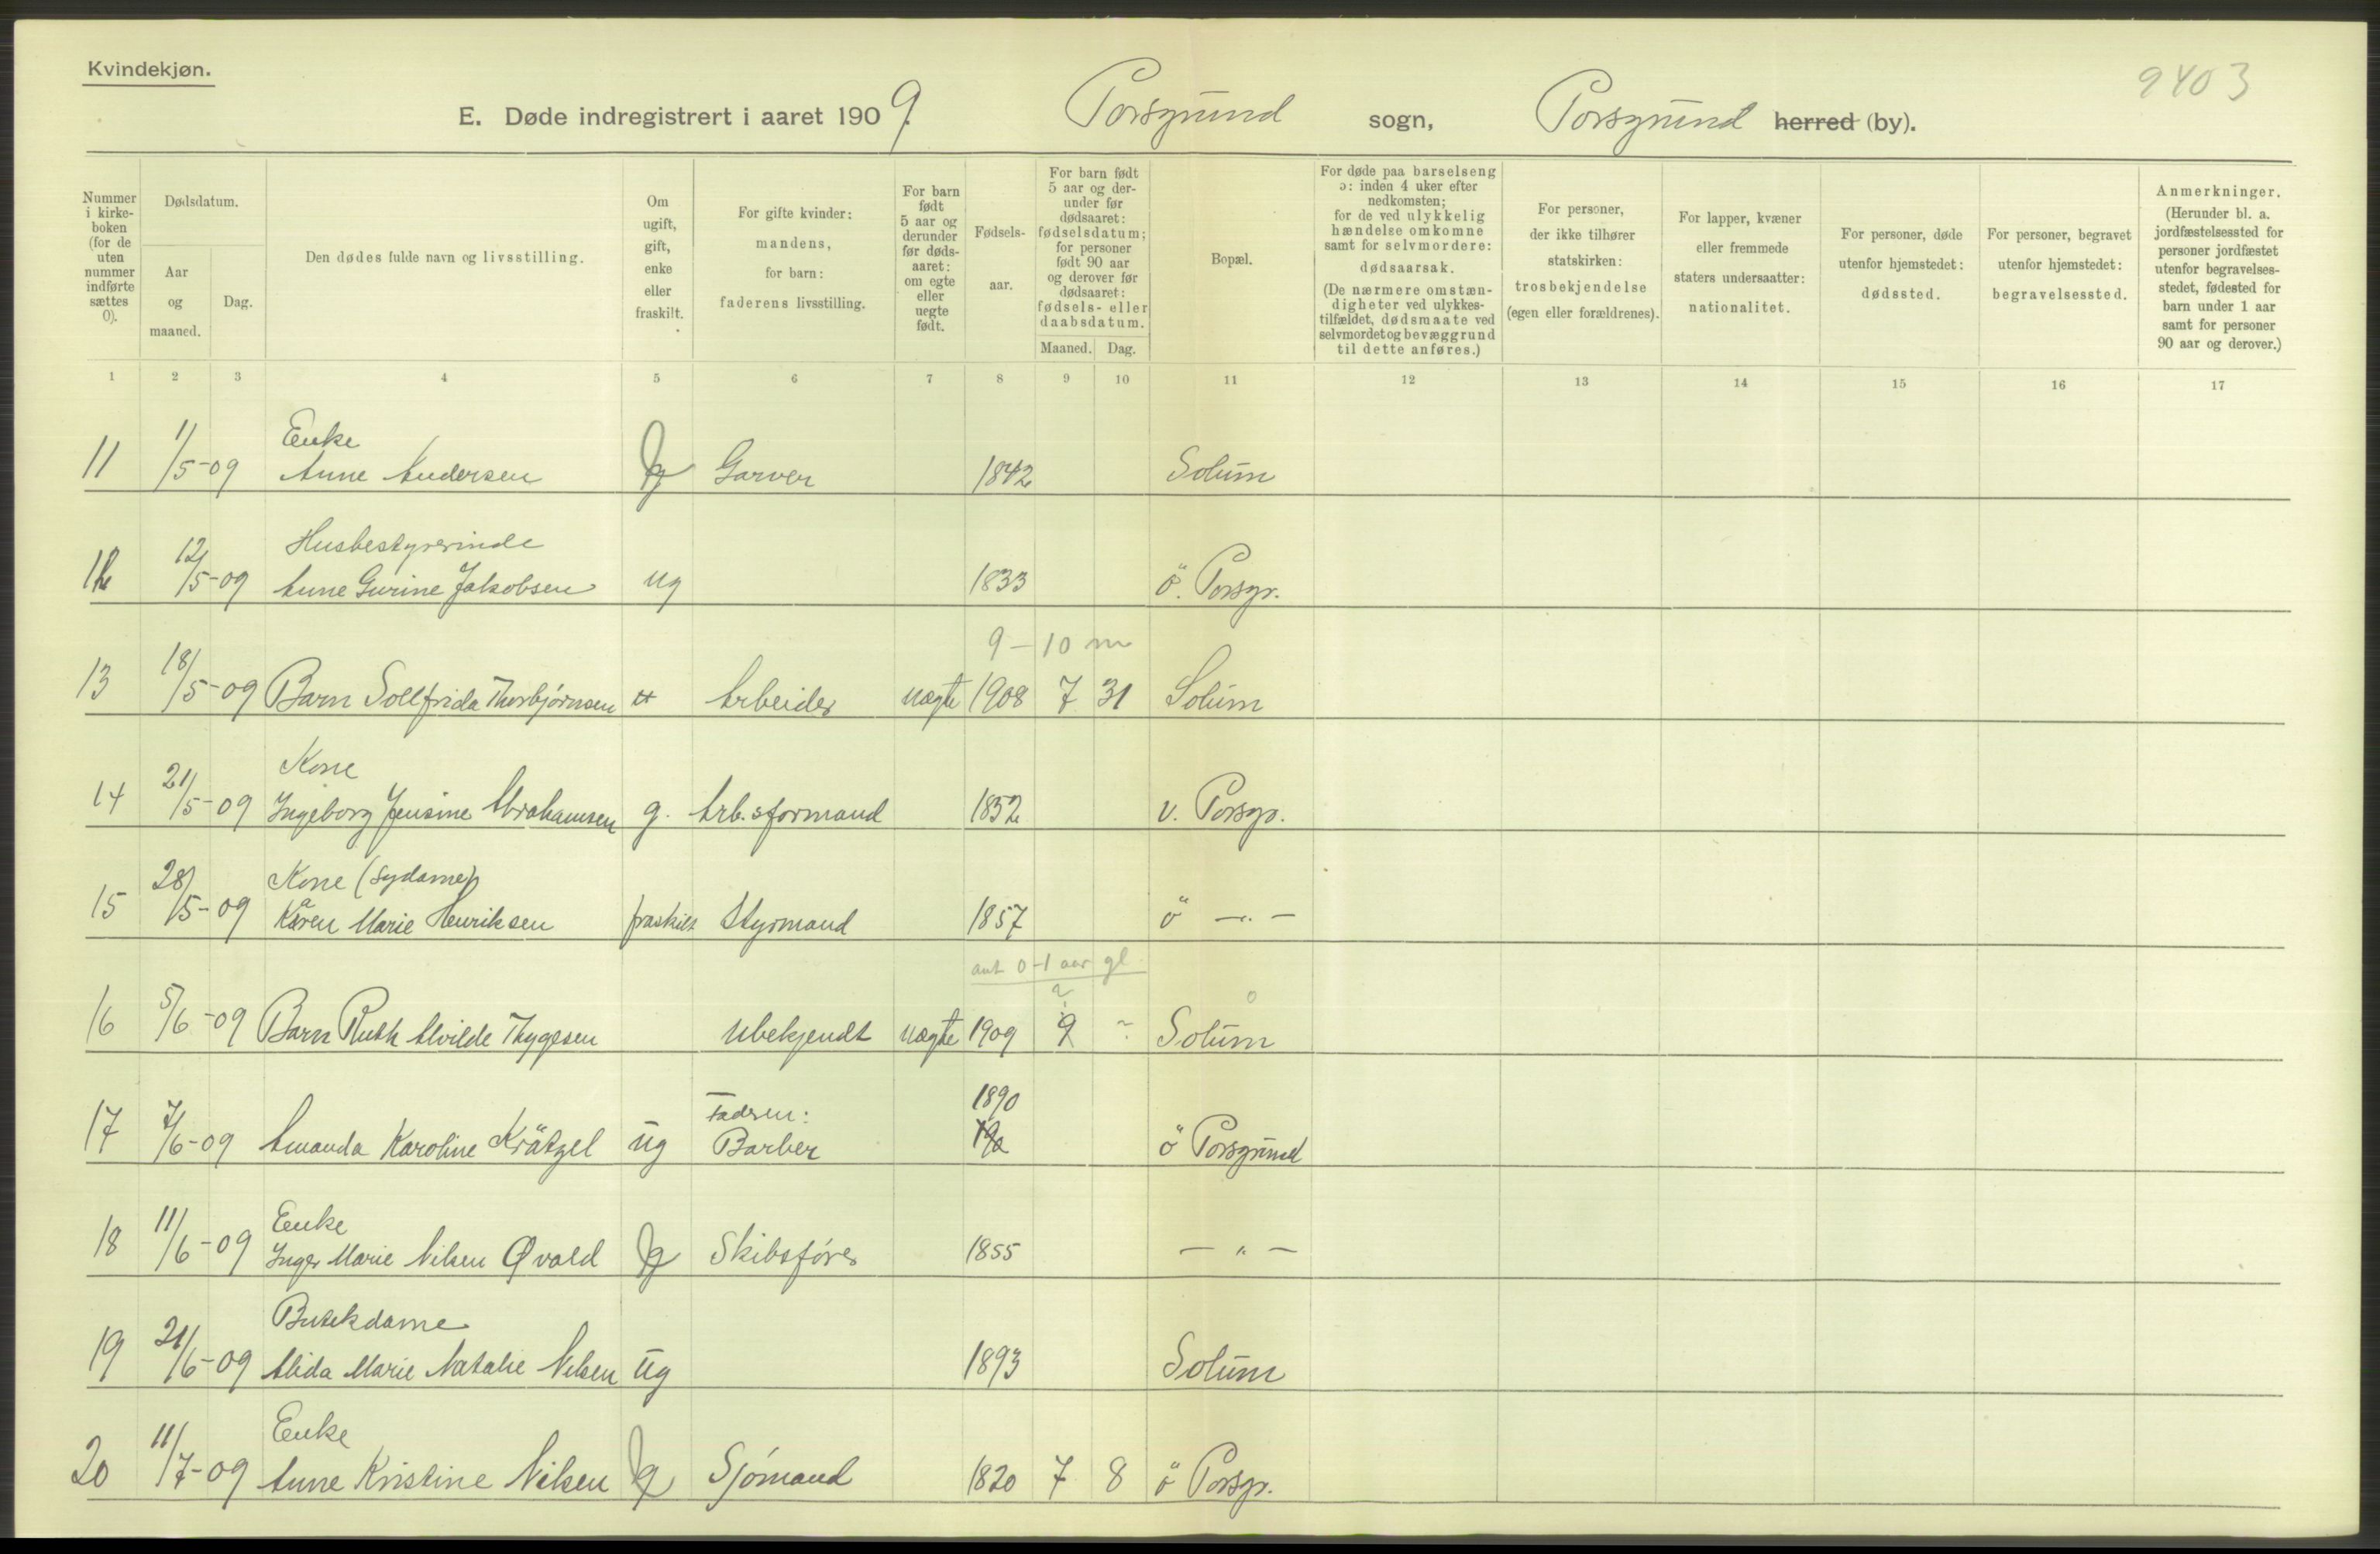 Kvindekjøn.
9403
E. Døde indregistrert i aaret 1909. Porsgrund sogn, Porsgrund herred (by).
Nummer i kirke-boken (for de uten nummer indførte sættes 0).
Dødsdatum.
Aar og maaned.
Dag.
Den dødes fulde navn og livsstilling.
Om ugift, gift, enke eller fraskilt.
For gifte kvinder: mandens, for barn: faderens livsstilling.
For barn født 5 aar og derunder før døds-aaret: om egte eller uegte født.
Fødsels-aar.
For barn født 5 aar og der-under før dødsaaret: fødselsdatum; for personer født 90 aar og derover før dødsaaret: fødsels- eller daabsdatum.
Maaned. Dag.
Bopæl.
For døde paa barselseng ɔ: inden 4 uker efter nedkomsten; for de ved ulykkelig hændelse omkomne samt for selvmordere: dødsaarsak. (De nærmere omstæn-digheter ved ulykkes-tilfældet, dødsmaate ved selvmordet og bevæggrund til dette anføres.)
For personer, der ikke tilhører statskirken: trosbekjendelse (egen eller forældrenes).
For lapper, kvæner eller fremmede staters undersaatter: nationalitet.
For personer, døde utenfor hjemstedet: dødssted.
For personer, begravet utenfor hjemstedet: begravelsessted.
Anmerkninger. (Herunder bl. a. jordfæstelsessted for personer jordfæstet utenfor begravelses-stedet, fødested for barn under 1 aar samt for personer 90 aar og derover.)
1 2 3 4 5 6 7 8 9 10 11 12 13 14 15 16 17
Enke
11 1/5-09 Anne Andersen g Garver 1842 Solum
Husbestyrerinde
12 12/5-09 Anne Gurine Jakobsen ug 1833 ö. Porsgr.
9-10 m
13 18/5-09 Barn Sollfrida Thorbjørnsen Arbeider uægte 1908 7 31 Solum
Kone
14 21/5-09 Ingeborg Jensine Abrahamsen g. Arb.sformand 1852 v. Porsgr.
Kone (Sydame)
15 28/5-09 Karen Marie Henriksen fraskilt Styrmand 1857 ö -"-
ant 0-1 aar gl.
16 5/6-09 Barn Ruth Alvilde Thygesen Ubekjendt uægte 1909 ? ? Solum
Faderen: 1890
17 7/6-09 Amanda Karoline Krätzel ug Barber ö Porsgrund
Enke
18 11/6-09 Inger Marie Nilsen Qvald g Skibsfører 1855 - " -
Butikdame
19 21/6-09 Alida Marie Natalie Nilsen ug 1893 Solum
Enke
20 11/7-09 Anne Kristine Nilsen g Sjómand 1820 7 8 ö Porsgr.